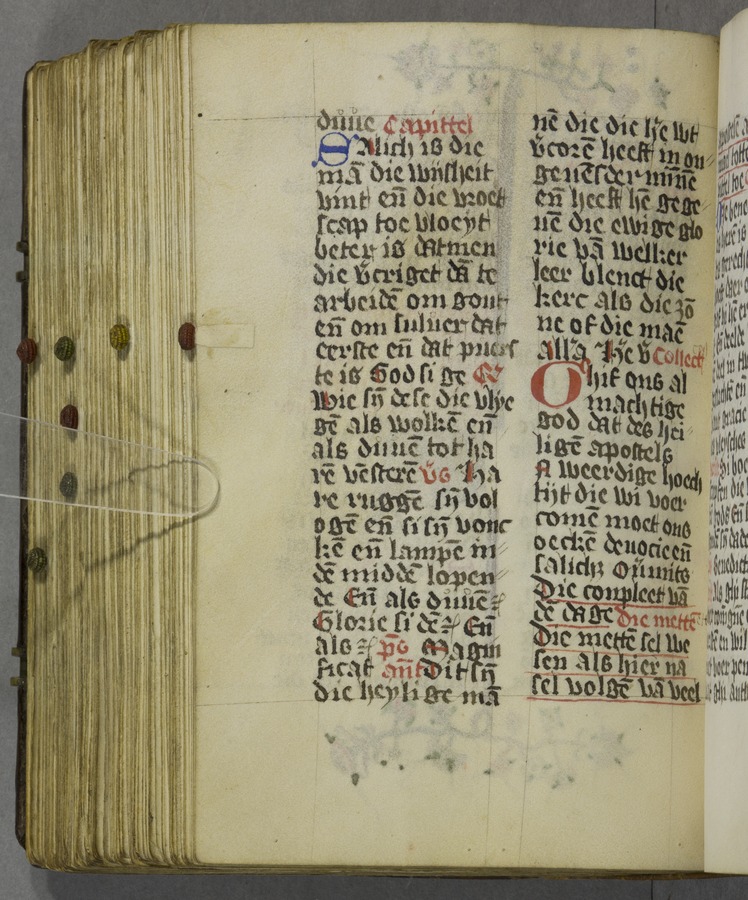 duue Capittel
SAlich is die
mā die wijsheit
vint en̄ die vroet
scap toe vloeyt
beter is datmen
die v̄criget dā te
arbeidē om gout
en̄ om siluer dat
eerste en̄ dat puers
te is God si ge
Wie sijn dese die vlye
gē als wolkē en̄
als duuē tot ha
rē vēsterē v̄s Ha
re ruggē sijn vol
ogē en̄ si sijn vonc
kē en̄ lampē in
dē middē lopen
de En̄ als duuē
Glorie si dē En̄
als p̄s Magni
ficat ant̄ Dit sijn
die heylige mā
nē die die h̄e wt
v̄corē heeft in on
geueīsder mīne
en̄ heeft hē gege
uē die ewige glo
rie vā welker
leer blenct die
kerc als die zō
ne of die maē
all'a H̄e v̄ Collect
O hif ons al
machtige
god dat des hei
ligēn apostels
N weerdige hoech
tijt die wi voer
comē moet ons
oeckē deuocie en̄
salich
Die conpleet vā
dē dage Die mettē
Die mettē sel we
sen als hier na
sel volgē vā veel